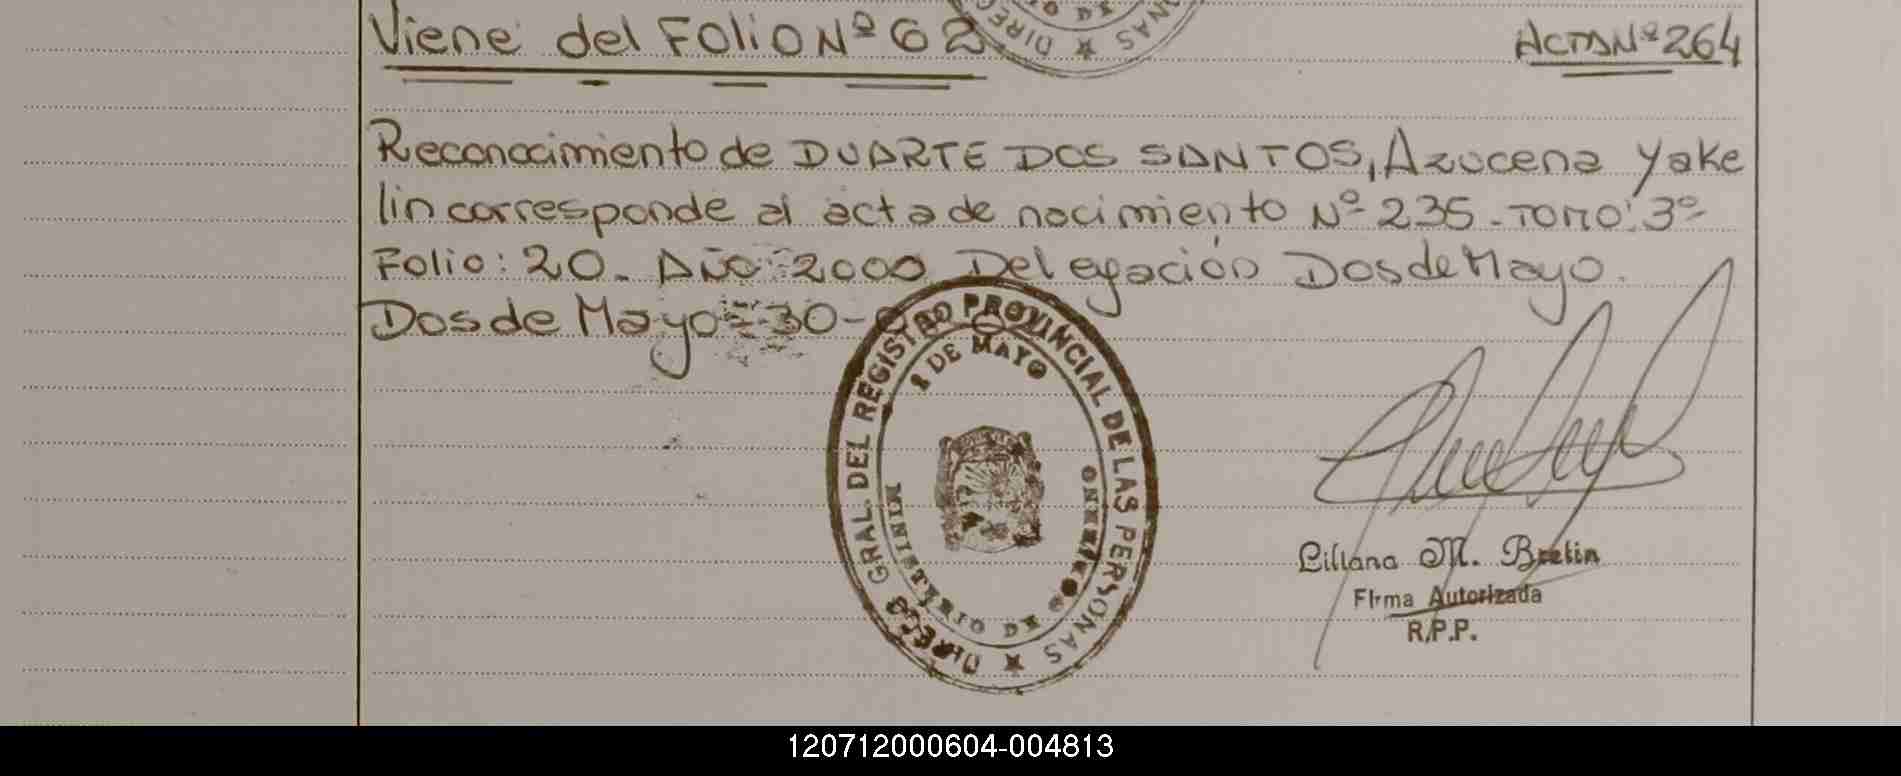 Viene del Folio Nº 62
ACTA Nº 264
Reconocimiento de DUARTE DOS SANTOS, Azucena Yake
lin corresponde al acta de nacimiento Nº 235 - TOMO: 3º
Folio: 20. Año: 2000 Delegación Dos de Mayo.
Dos de Mayo - 30-
DIREC. GRAL. DEL REGISTRO PROVINCIAL DE LAS PERSONAS
2 DE MAYO
MINISTERIO DE GOBIERNO
Liliana M. Brelin
Firma Autorizada
R.P.P.
120712000604-004813